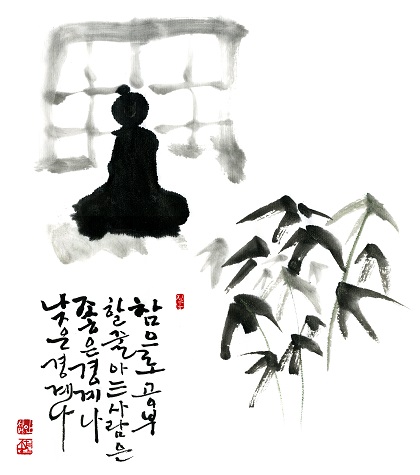 참으로 공부
할 줄 아는 사람은
좋은 경계나
낮은 경계나